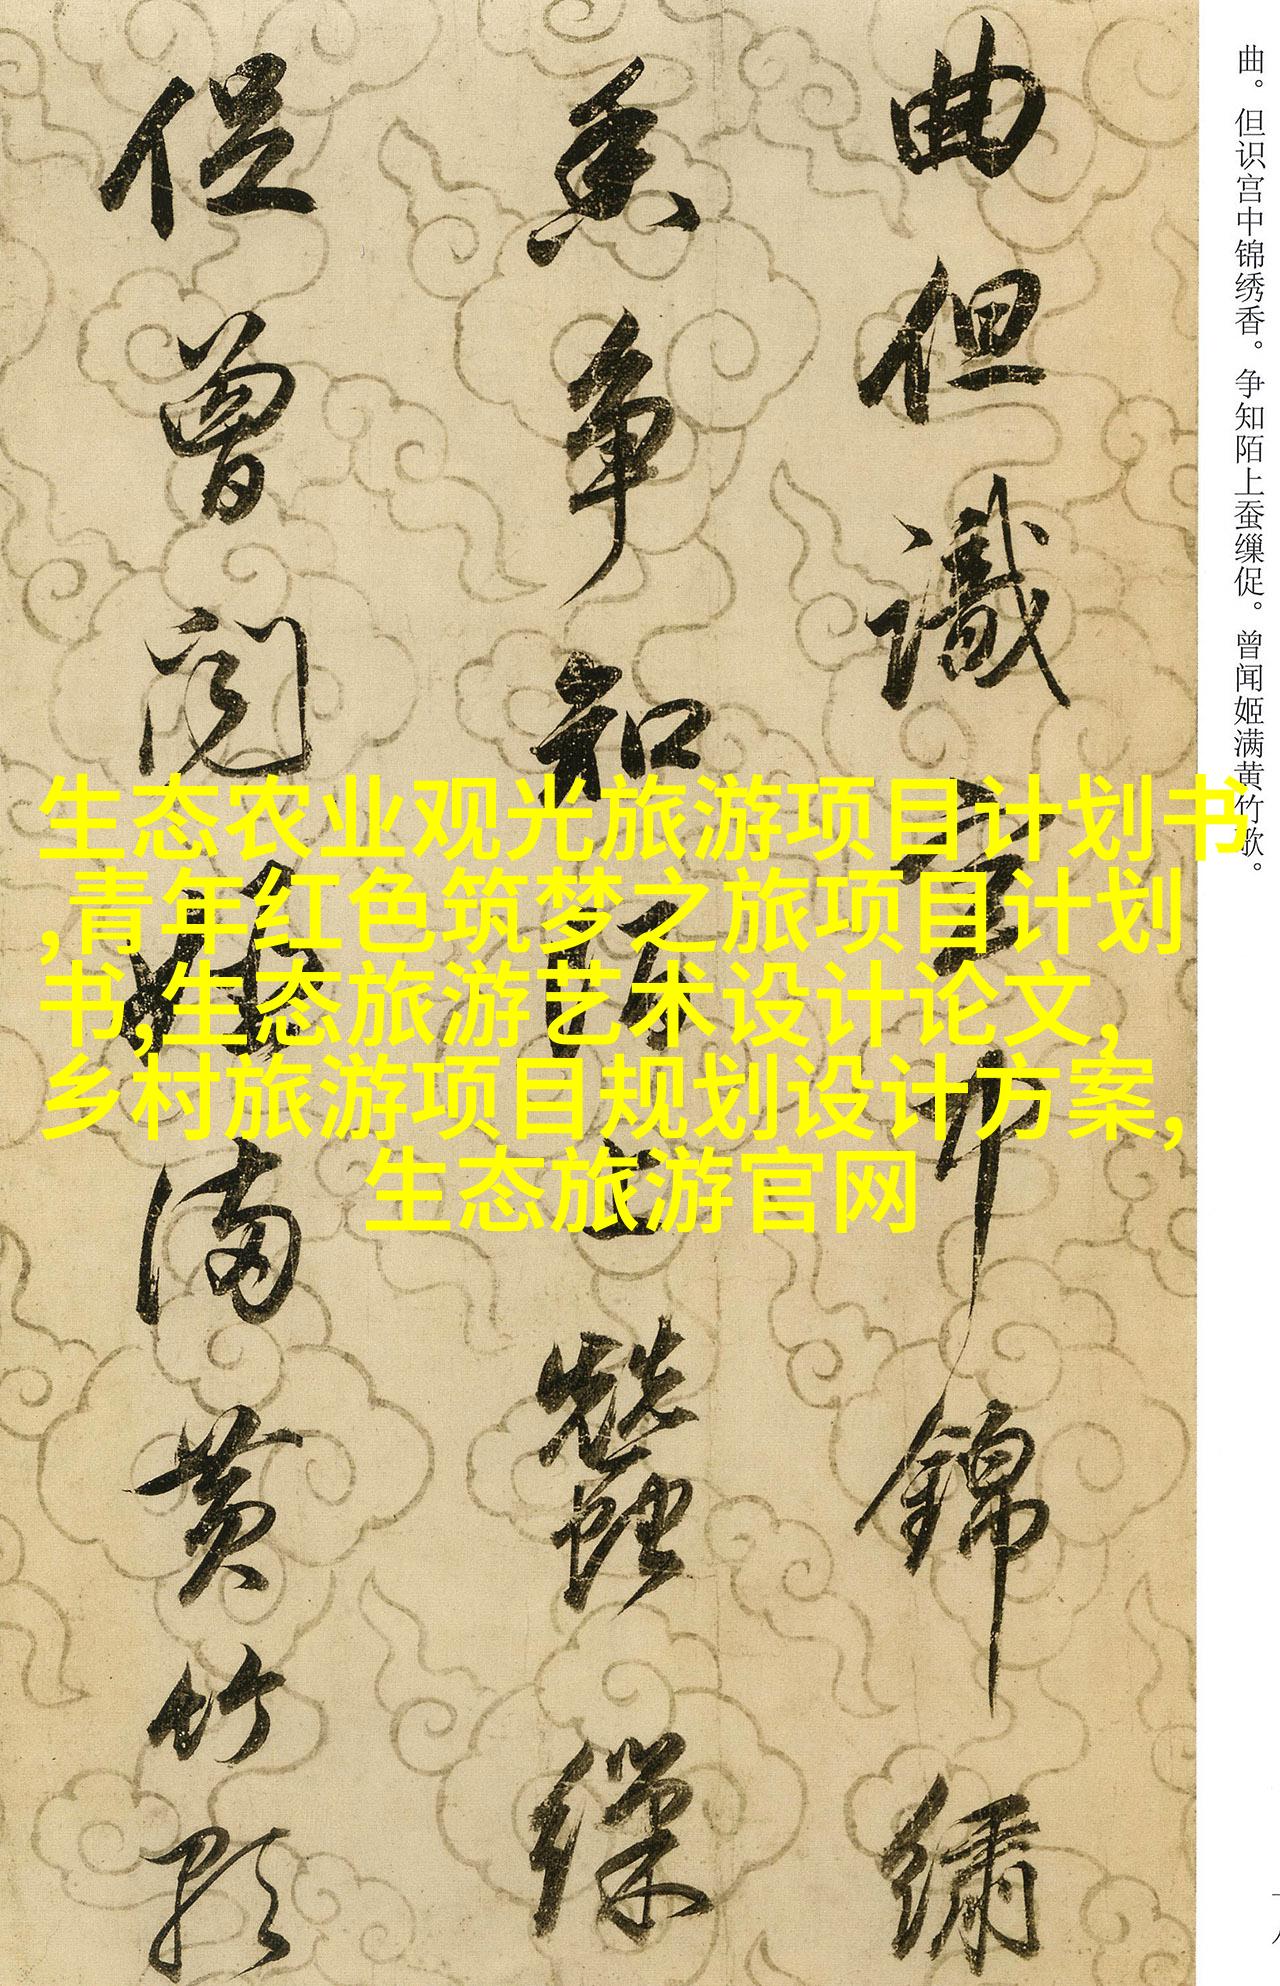 曲但識宫中錦繡
香争知陌上蠶繅
促曾聞姬满黄竹歌
曲。但识宫中锦绣香。争知陌上蚕缫促。曾闻姬满黄竹歌。
生态农业观光旅游项目计划书
,青年红色筑梦之旅项目计划
书,生态旅游艺术设计论文,
乡村旅游项目规划设计方案,
生态旅游官网